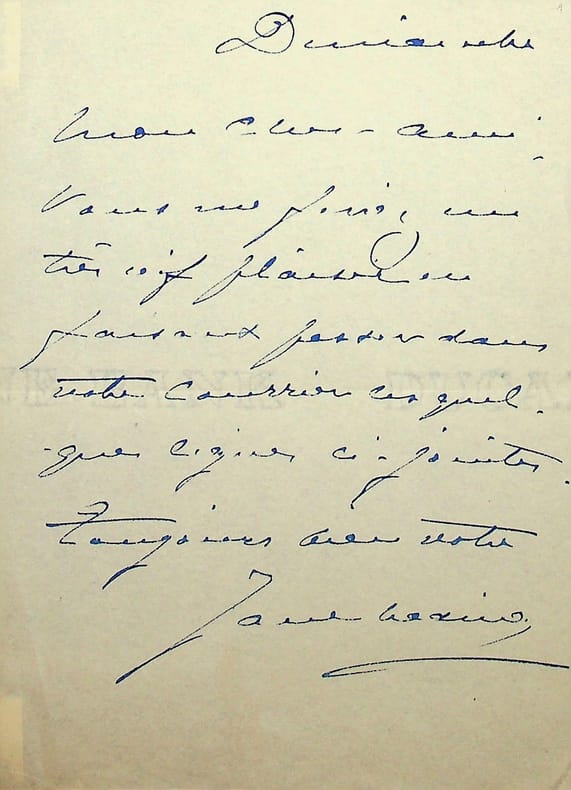 Dimanche
Mon cher ami,
Vous me feriez un
très vif plaisir en
faisant passer dans
votre courrier ces quel-
ques lignes ci-jointes.
Toujours bien votre
Jane Hading